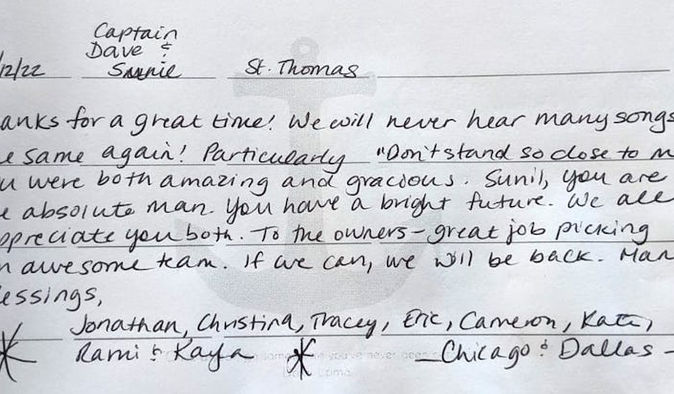 Captain
Dave &
/12/22 Sunie St. Thomas
anks for a great time! We will never hear many songs
e same again! Particularly "Don't stand so close to m
u were both amazing and gracious. Sunil, you are
e absolute man. You have a bright future. We all
ppreciate you both. To the owners - great job picking
n awesome team. If we can, we will be back. Man
essings,
Jonathan, Christina, Tracey, Eric, Cameron, Kate,
Rami & Kaya - Chicago & Dallas -
you've never